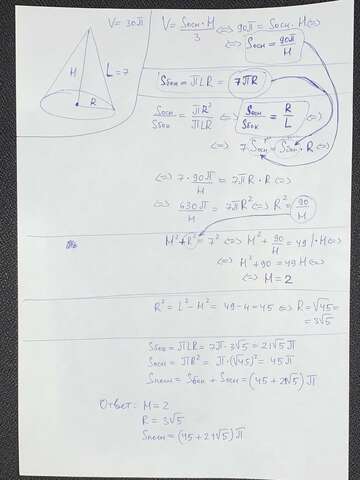 V = 30π
H
L = 7
R
V = Sосн · H / 3 ⇔ 90π = Sосн · H ⇔
⇔ Sосн = 90π / H
Sбок = πLR = 7πR
Sосн / Sбок = πR² / πLR ⇔ Sосн / Sбок = R / L ⇔
⇔ 7 · Sосн = Sбок · R ⇔
⇔ 7 · 90π / H = 7πR · R ⇔
⇔ 630π / H = 7πR² ⇔ R² = 90 / H
H² + R² = 7² ⇔ H² + 90 / H = 49 | · H ⇔
⇔ H³ + 90 = 49H ⇔
⇔ H = 2
R² = L² - H² = 49 - 4 = 45 ⇔ R = √45 =
= 3√5
Sбок = πLR = 7π · 3√5 = 21√5 π
Sосн = πR² = π · (√45)² = 45π
Sполн = Sбок + Sосн = (45 + 21√5) π
Ответ: H = 2
R = 3√5
Sполн = (45 + 21√5) π